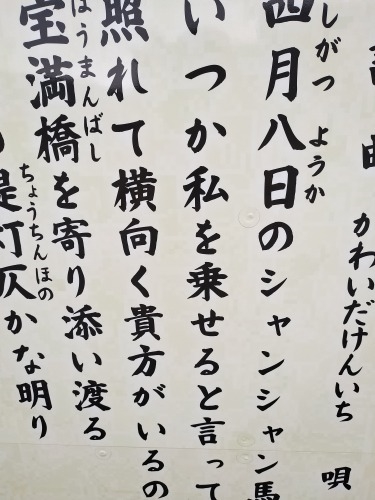 かわいだけんいち 唄
四月八日のシャンシャン馬
しがつ ようか
いつか私を乗せると言って
照れて横向く貴方がいるの
宝満橋を寄り添い渡る
ほうまんばし
提灯仄かな明り
ちょうちんほの